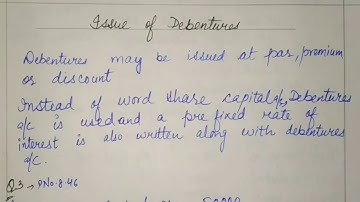 Issue of Debentures
Debentures may be issued at par, premium
or discount
Instead of word share capital a/c, Debentures
a/c is used and a pre fixed rate of
interest is also written along with debentures
a/c.
Q3 → P No. 8.46